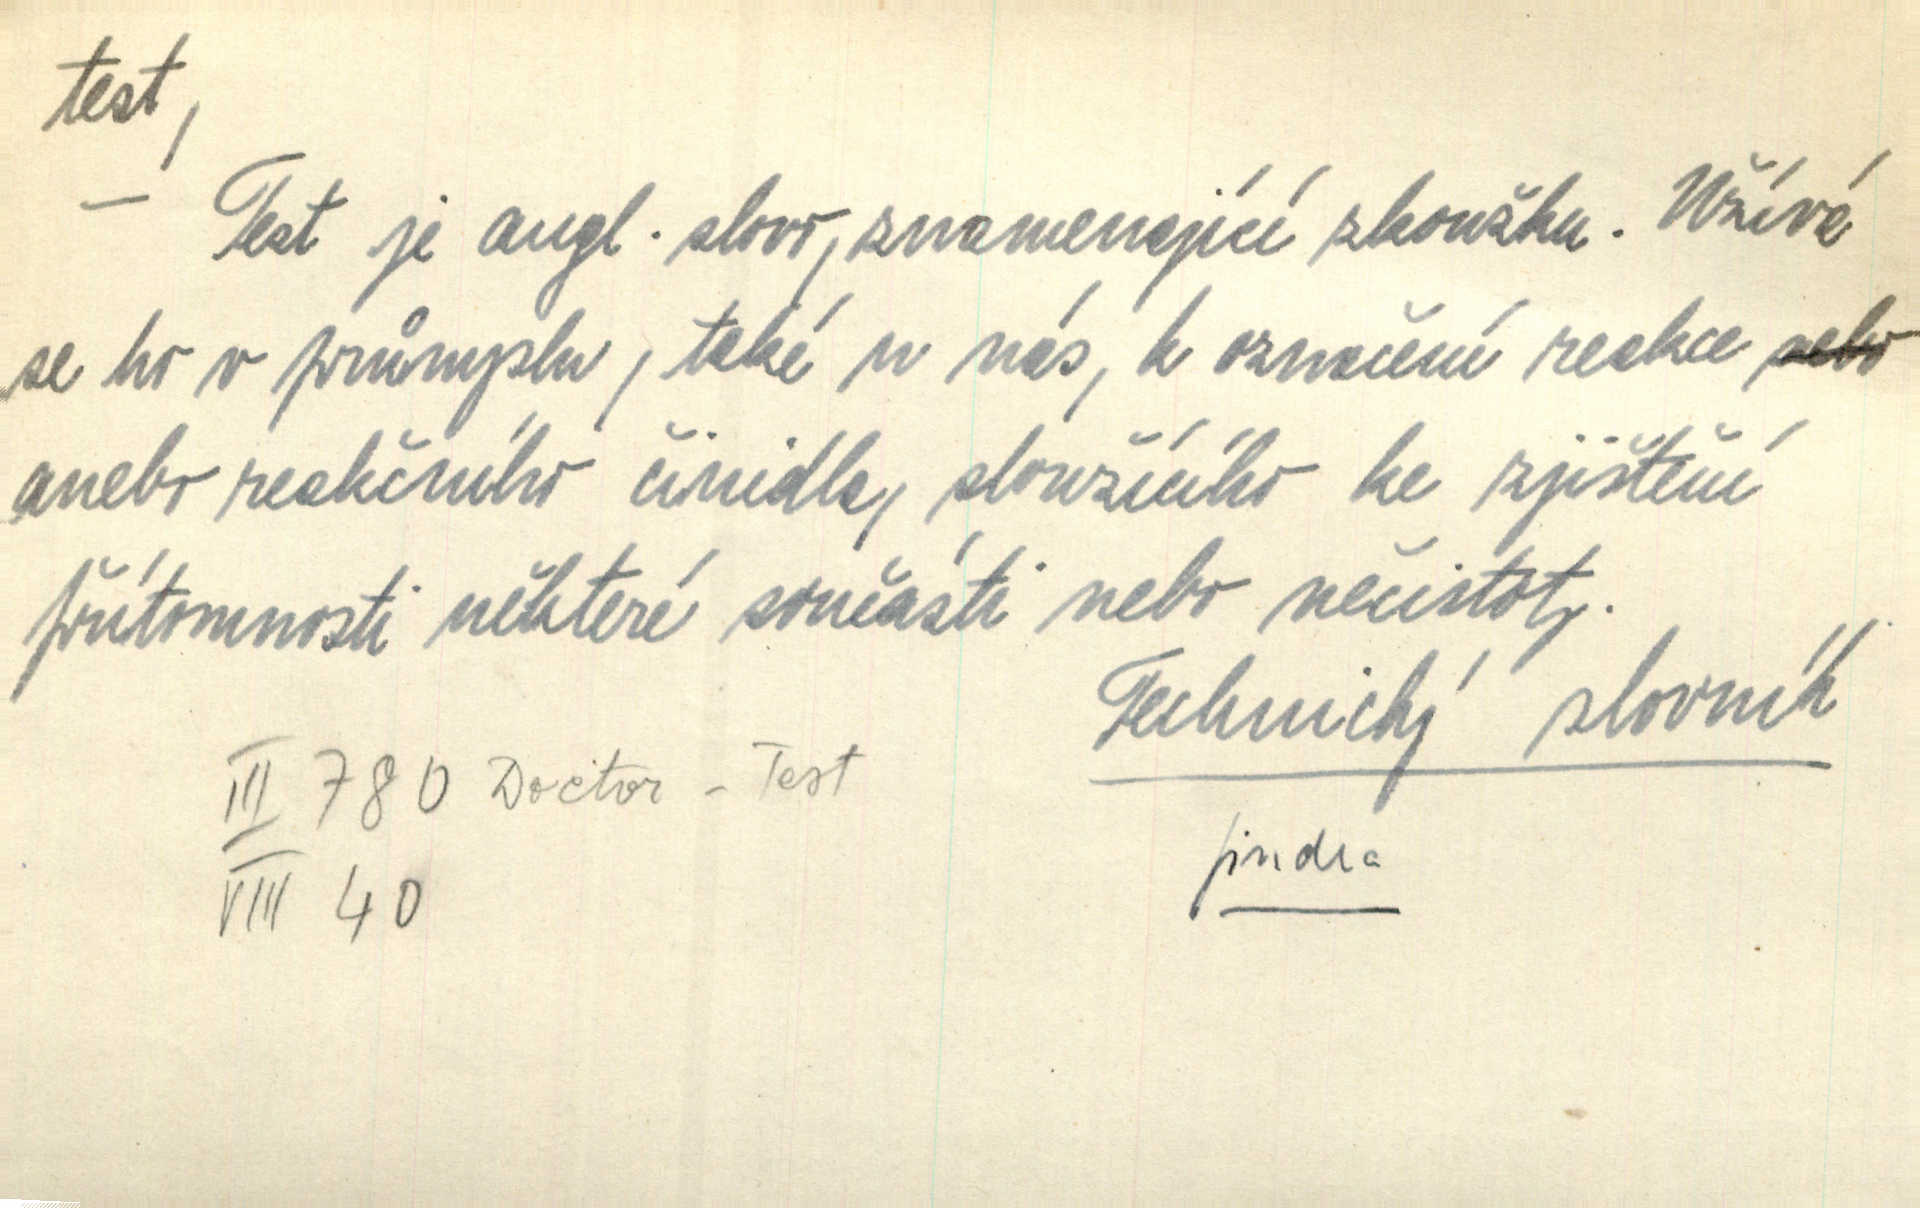 test,
— Test je angl. slovo, znamenající zkoušku. Užívá
se ho v průmyslu, také u nás, k označení reakce nebo
anebo reakčního činidla, sloužícího ke zjištění
přítomnosti některé součásti nebo nečistoty.
Technický slovník
III 780 Doctor - Test
jindra
VIII 40